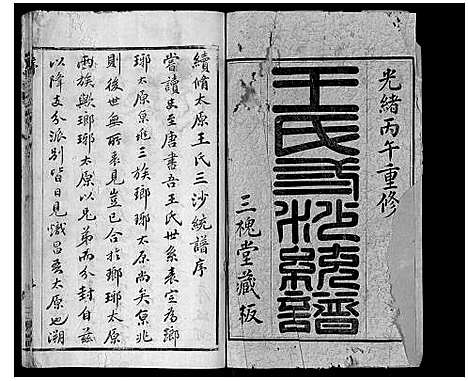 光緒丙午重修
王氏三沙統譜
三槐堂藏板
續脩太原王氏三沙統譜序
嘗讀史至唐書吾王氏世系表定為瑯
瑯太原京兆三族瑯瑯太原尚矣京兆
則後世無所表見豈已合於瑯瑯太原
兩族歟瑯瑯太原以兄弟兩分封自茲
以降支分派別皆日見熾昌吾太原也溯